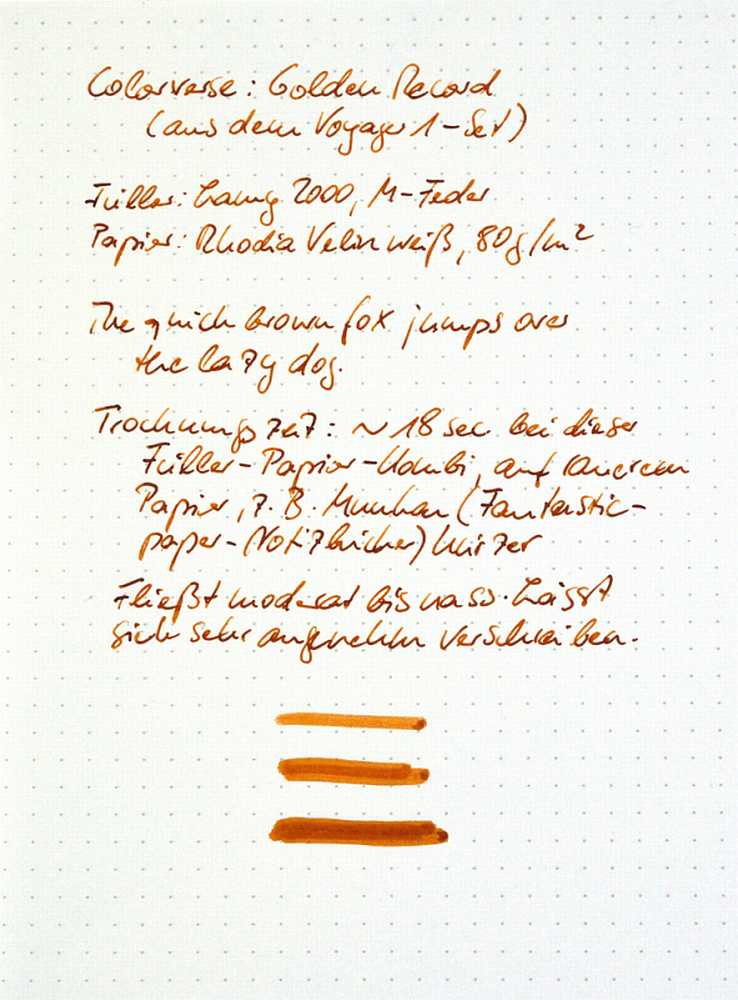 Colorverse: Golden Record
(aus dem Voyager 1-Set)
Füller: Lamy 2000, M-Feder
Papier: Rhodia Velin weiß, 80g/m²
The quick brown fox jumps over
the lazy dog.
Trocknungszeit: ~18 sec bei dieser
Füller-Papier-Kombi, auf
Papier, z.B. Munken (Fantastic-
paper-Notizbücher) kürzer
Fließt moderat bis nass. Lässt
sich sehr angenehm verschreiben.